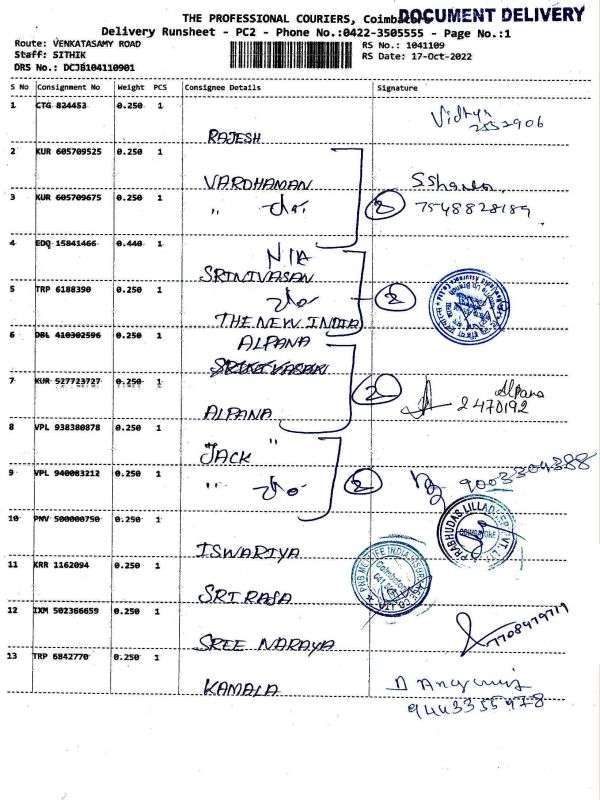 THE PROFESSIONAL COURIERS, Coimbatore
DOCUMENT DELIVERY
Delivery Runsheet - PC2 - Phone No.:0422-3505555 - Page No.:1
Route: VENKATASAMY ROAD
RS No.: 1041109
Staff: SITHIK
RS Date: 17-Oct-2022
DRS No.: DCJB104110901
S No Consignment No Weight PCS Consignee Details Signature
1 CTG 824453 0.250 1
Vidhya
2552906
RAJESH
2 KUR 605709525 0.250 1
VARDHAMAN
3 KUR 605709675 0.250 1
" 2
7548828189
4 EDQ 15841466 0.440 1
NIA
SRINIVASAN
5 TRP 6188390 0.250 1
2
THE NEW INDIA
6 DBL 410302596 0.250 1
ALPANA
7 KUR 527723727 0.250 1
2 Alpana
2470192
ALPANA
8 VPL 938380878 0.250 1
JACK "
9 VPL 940003212 0.250 1
" 2 9003304388
10 PNV 500000750 0.250 1
PRABHUDAS LILLADHER PVT LTD
COIMBATORE
ISWARIYA
11 KRR 1162094 0.250 1
PNB METLIFE INDIA INSURANCE CO. LTD.
Coimbatore
SRI RAJA
12 IXM 502366659 0.250 1
7708479719
SREE NARAYA
13 TRP 6842770 0.250 1
KAMALA
9443355978